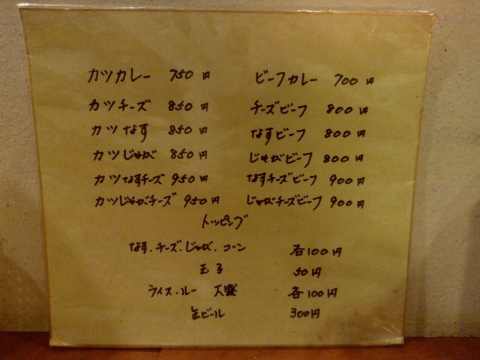 カツカレー 750円 ビーフカレー 700円
カツチーズ 850円 チーズビーフ 800円
カツなす 850円 なすビーフ 800円
カツじゃが 850円 じゃがビーフ 800円
カツなすチーズ 950円 なすチーズビーフ 900円
カツじゃがチーズ 950円 じゃがチーズビーフ 900円
トッピング
なす、チーズ、じゃが、コーン 各100円
玉子 50円
ライス・ルー 大盛 各100円
缶ビール 300円